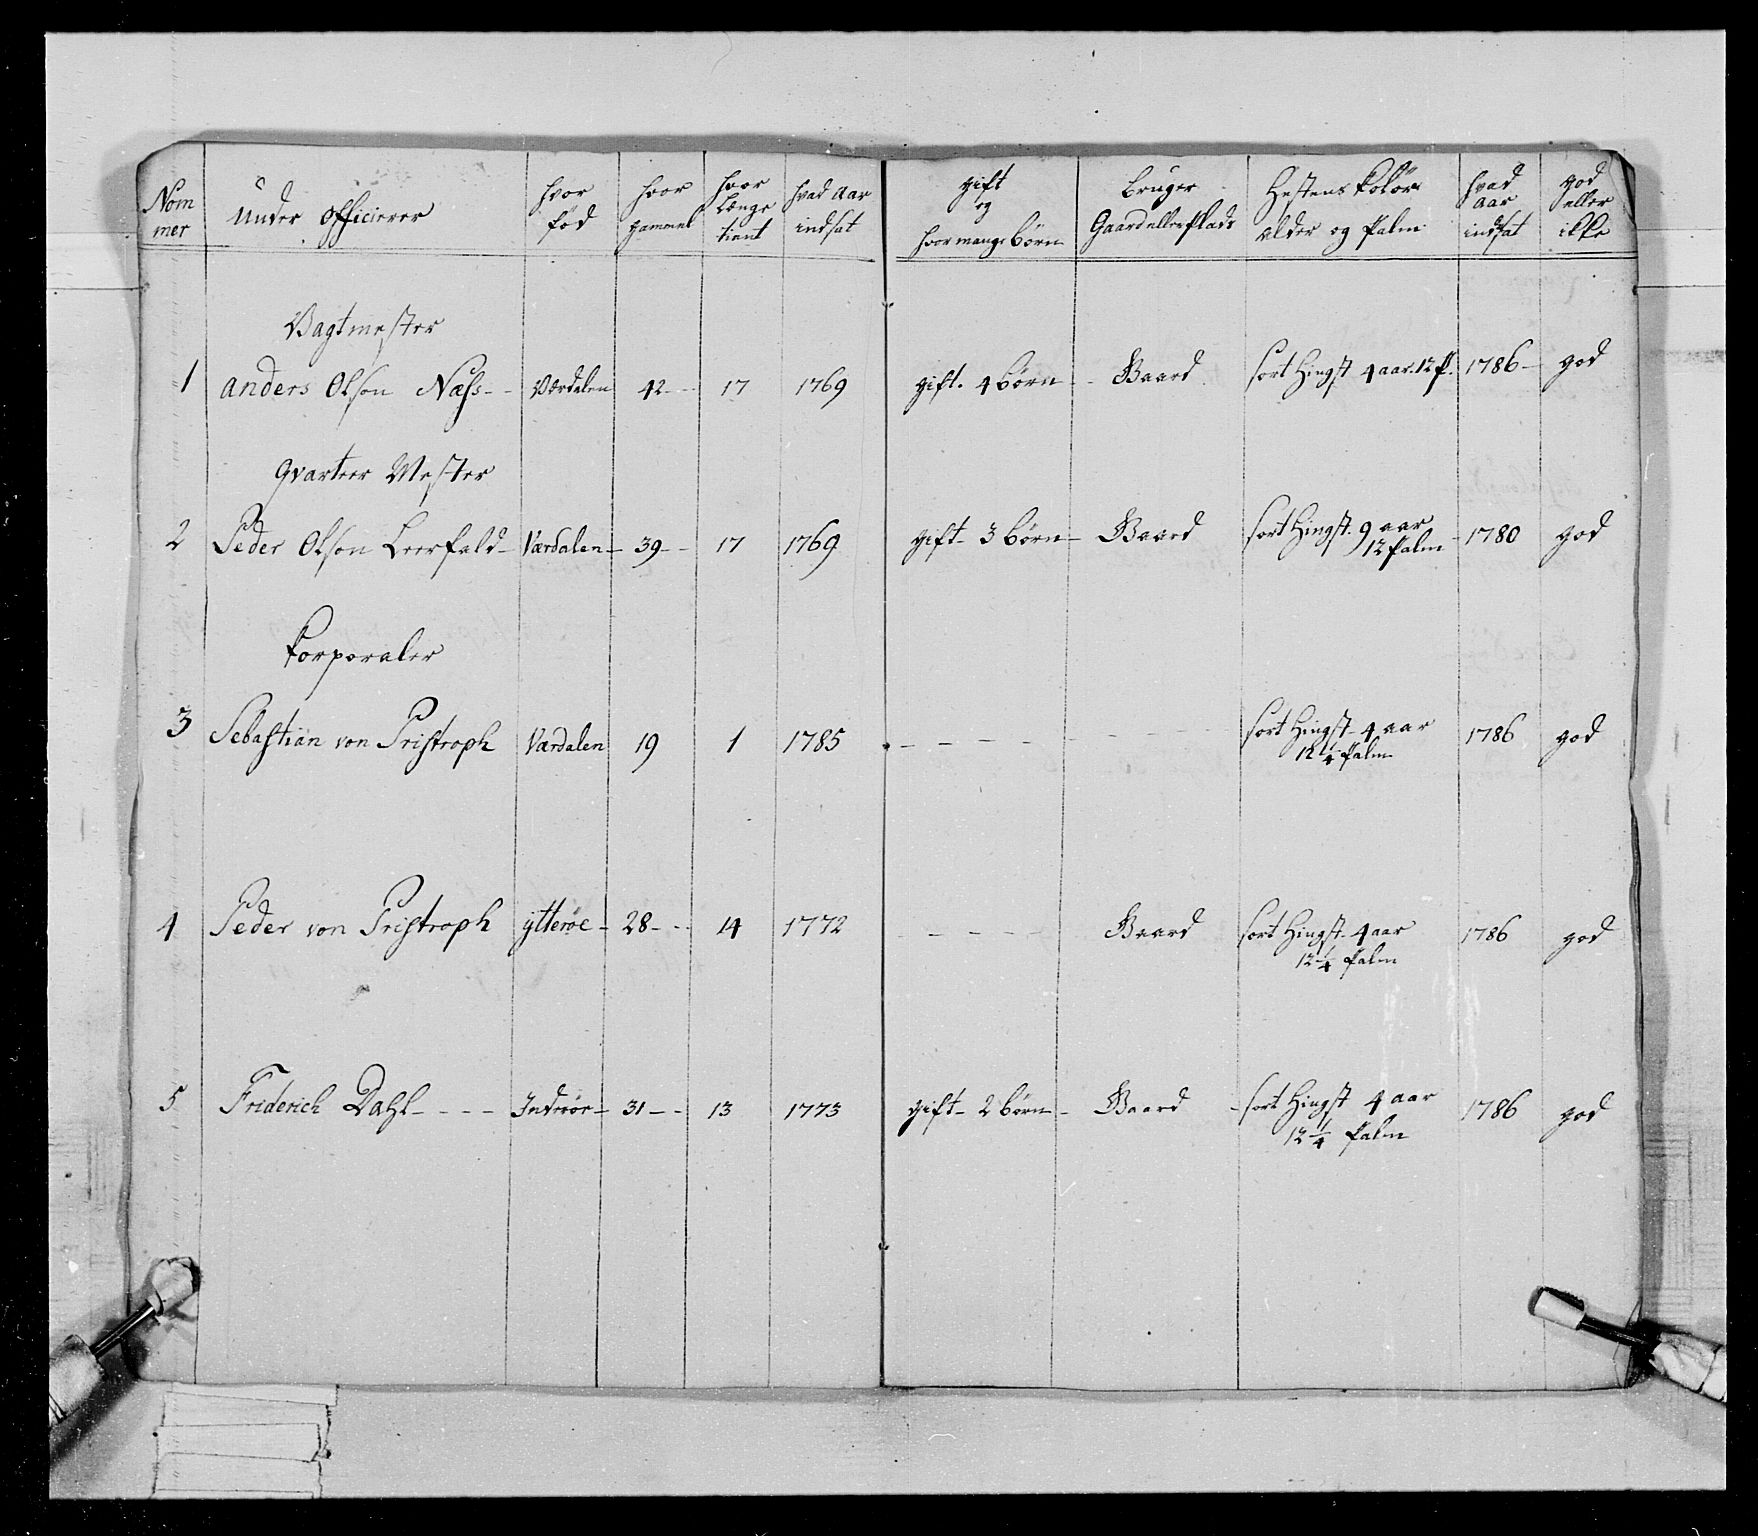 Nom mer | Under Officierer | hvor fød | hvor gammel | hvor Længe tient | hvad Aar indsat | gift og hvor mange børn | bruger Gaard eller Plads | Hestens kolør alder og Palm | hvad aar indsat | god eller ikke
Vagtmester
1 | Anders Olson Næss - - | Værdalen | 42 - - | 17 | 1769 | gift. 4 børn - | Gaard | sort Hingst 4 aar. 12 P. | 1786 - | god
Qvarteer Mester
2 | Peder Olson Leerfald - | Værdalen - | 39 - - | 17 | 1769 | gift - 3 børn - | Gaard | sort Hingst. 9 aar 12 Palm - | 1780 | god
Korporaler
3 | Sebastian von Pristroph | Værdalen | 19 | 1 | 1785 | - - - - - | - - - - | sort Hingst - 4 aar 12 1/4 Palm | 1786 | god
4 | Peder von Pristroph | ytterøe - | 28 - - - | 14 | 1772 | - - - - | Gaard | sort Hingst - 4 aar 12 1/4 Palm | 1786 | god
5 | Friderich Dahl - - - - | Inderøe - | 31 - - | 13 | 1773 | gift - 2 børn - | Gaard - | sort Hingst 4 aar 12 1/4 Palm | 1786 | god